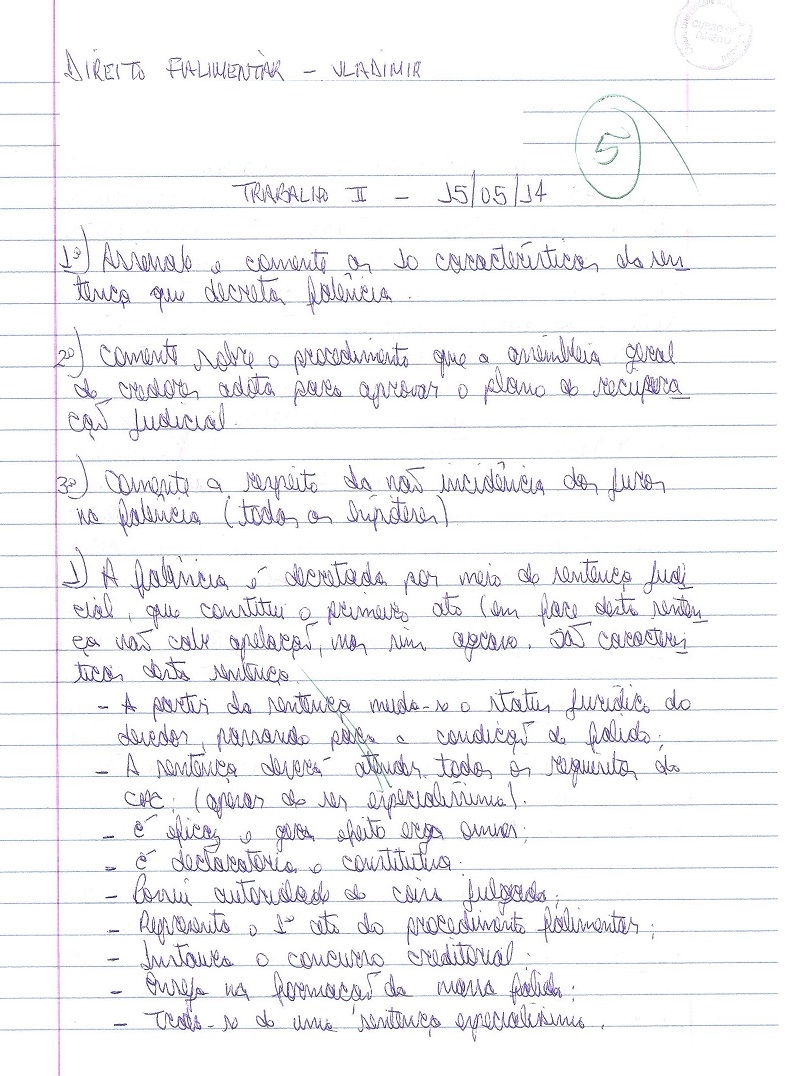 CURSO DE
DIREITO
DIREITO FALIMENTAR - VLADIMIR
5
TRABALHO II - 15/05/14
1º) Assinale e comente as 10 características da sen
tença que decreta falência.
2º) Comente sobre o procedimento que a assembleia geral
de credores adota para aprovar o plano de recupera
ção judicial.
3º) Comente a respeito da não incidência dos juros
na falência (todas as hipóteses)
1) A falência é decretada por meio de sentença judi
cial, que constitui o primeiro ato (em face desta senten
ça não cabe apelação, mas sim agravo. São caracterís
ticas desta sentença
- A partir da sentença muda-se o status jurídico do
devedor, passando para a condição de falido;
- A sentença deverá atender todos os requisitos do
CPC; (apesar de ser especialíssima).
- é eficaz e gera efeito erga omnes;
- é declaratória e constitutiva.
- Possui autoridade de coisa julgada;
- Representa o 1º ato do procedimento falimentar;
- Instaura o concurso creditorial;
- Enseja na formação da massa falida;
- Trata-se de uma sentença especialíssima.